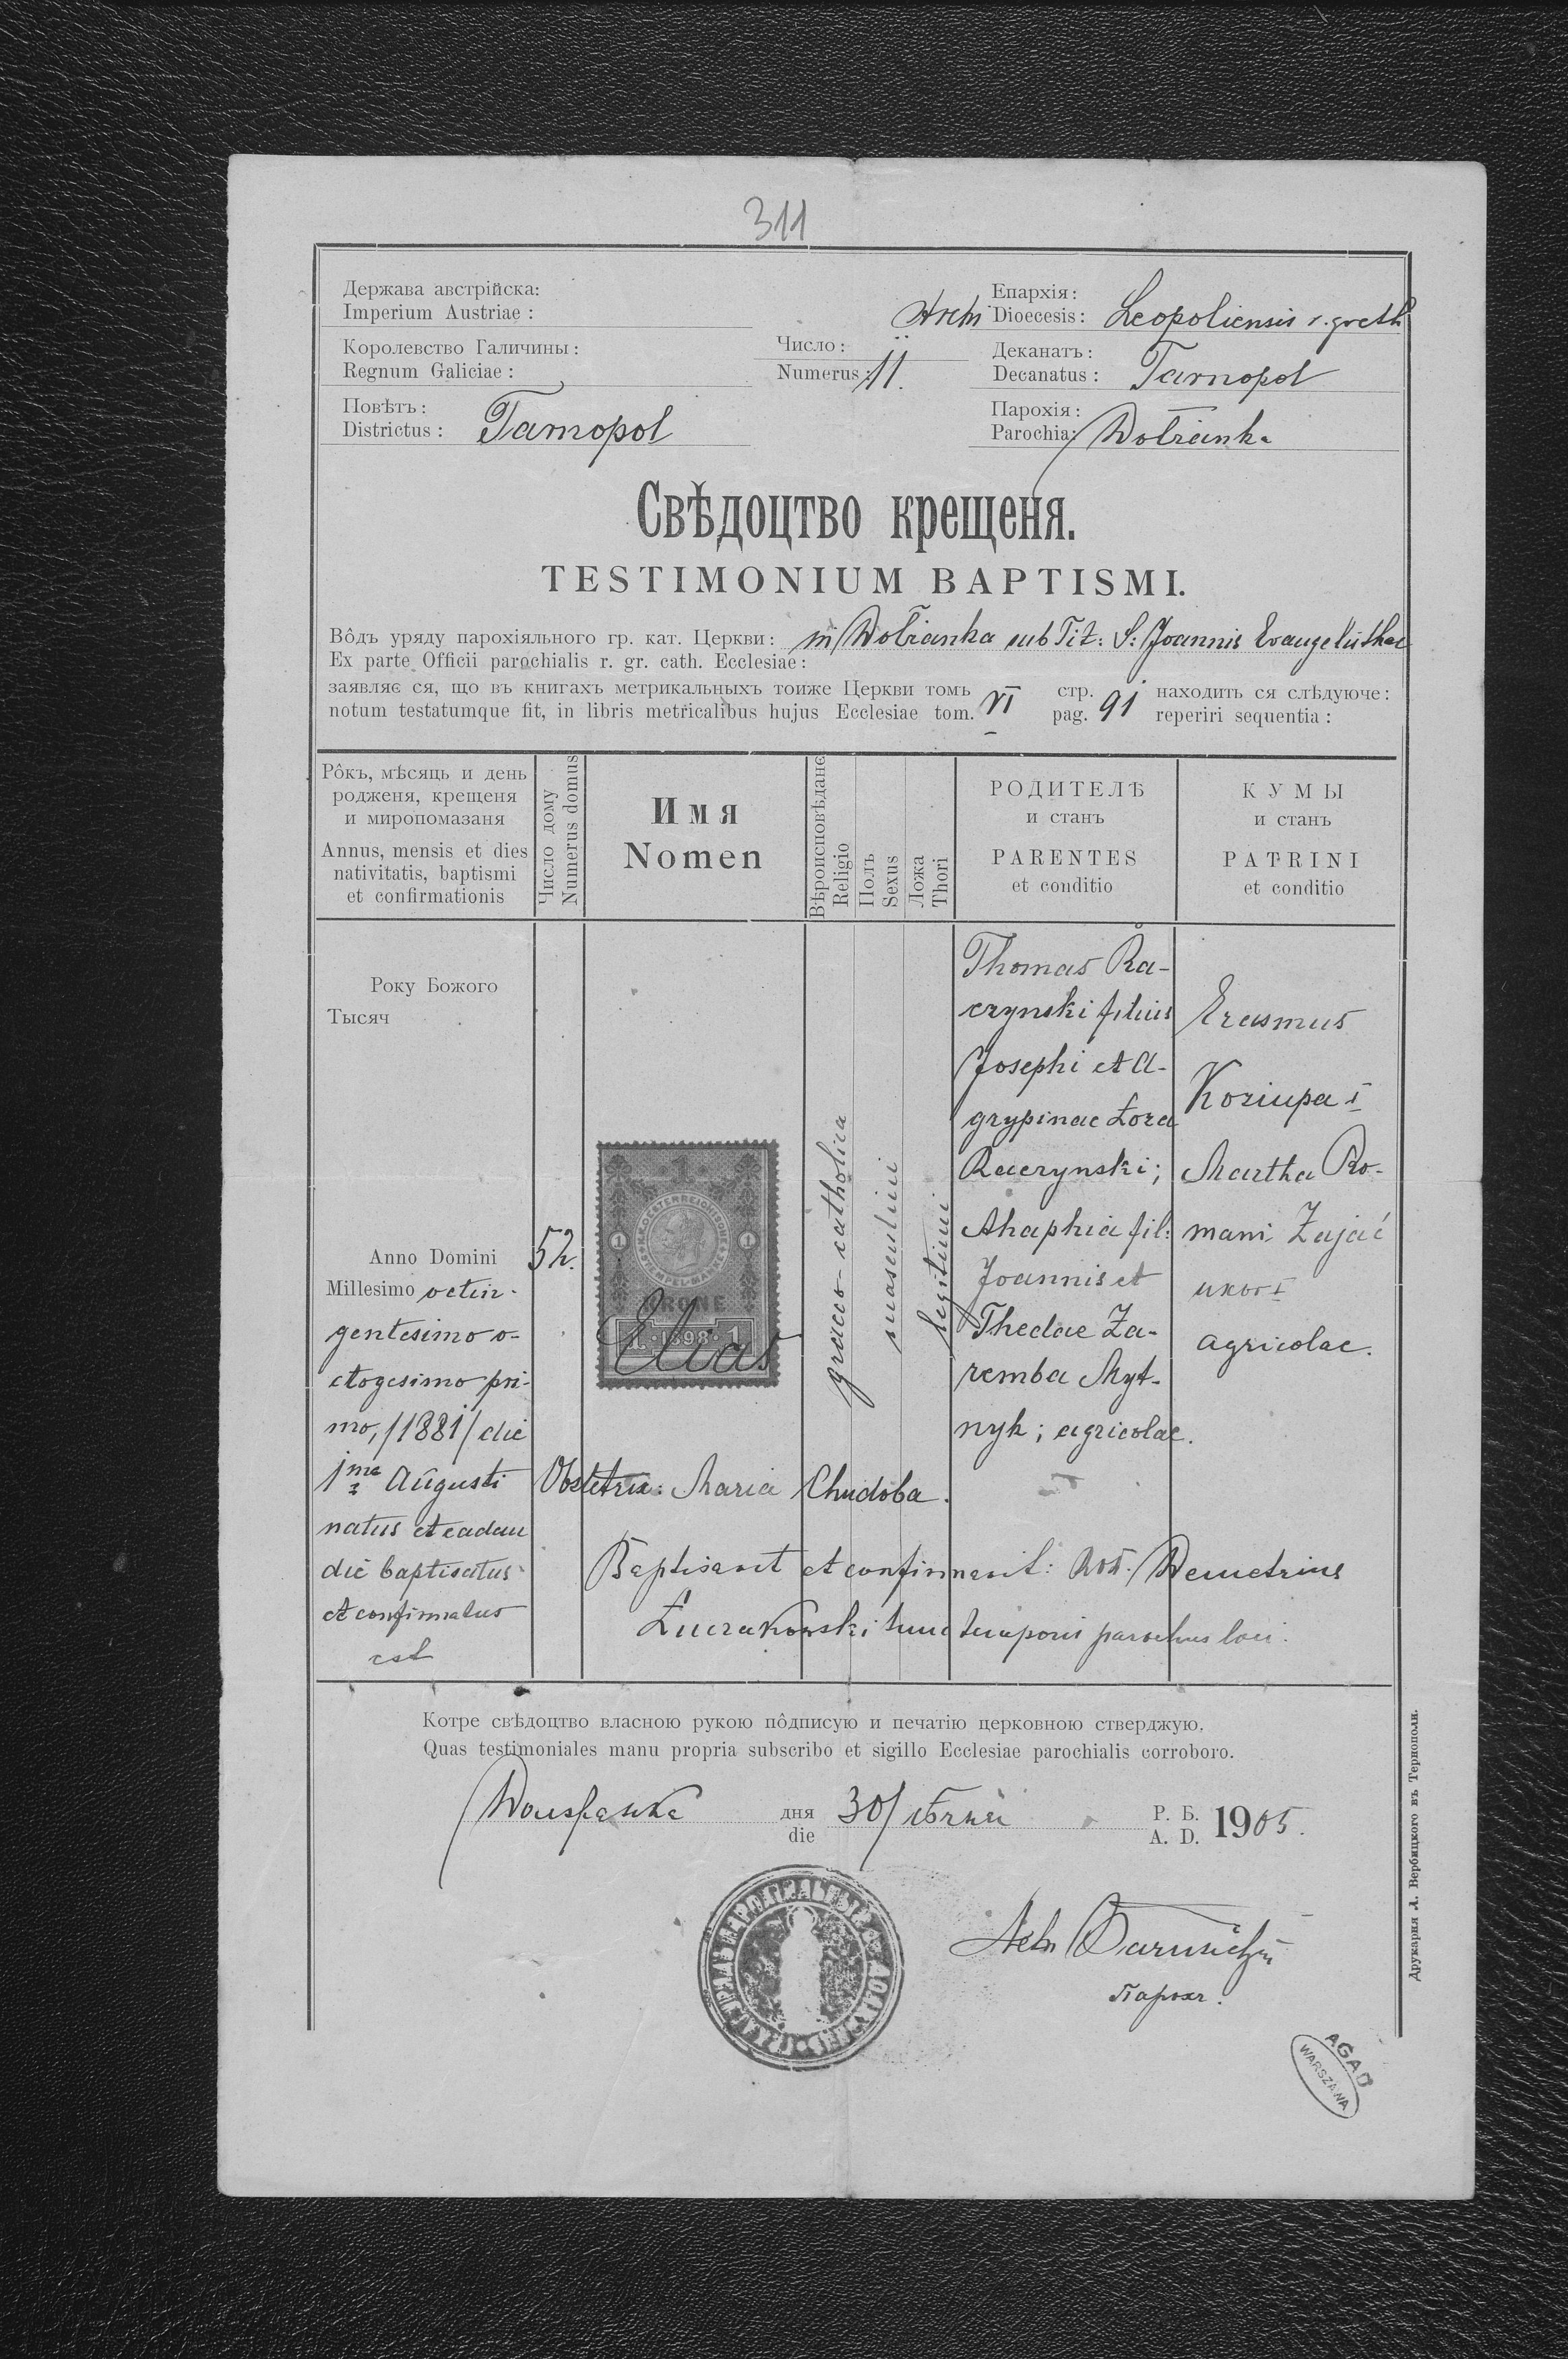 311
Держава австрійска:
Imperium Austriae :
Королевство Галичины :
Regnum Galiciae :
Повѣтъ :
Districtus : Tarnopol
Число :
Numerus : 11.
Епархія :
Archi Dioecesis : Leopoliensis r. gr cath
Деканатъ :
Decanatus : Tarnopol
Парохія :
Parochia:
Свѣдоцтво крещеня.
TESTIMONIUM BAPTISMI.
Вôдъ уряду парохіяльного гр. кат. Церкви: in sub Tit: S: Joannis
Ex parte Officii parochialis r. gr. cath. Ecclesiae :
заявляє ся, що въ книгахъ метрикальныхъ тоиже Церкви томъ стр. находить ся слѣдуюче :
notum testatumque fit, in libris metricalibus hujus Ecclesiae tom. VI pag. 91 reperiri sequentia :
Рôкъ, мѣсяць и день
родженя, крещеня
и миропомазаня
Annus, mensis et dies
nativitatis, baptismi
et confirmationis
Число дому
Numerus domus
Имя
Nomen
Вѣроисповѣдане
Religio
Полъ
Sexus
Ложа
Thori
РОДИТЕЛѢ
и станъ
PARENTES
et conditio
КУМЫ
и станъ
PATRINI
et conditio
Року Божого
Тысяч
Anno Domini
Millesimo octin-
gentesimo o-
ctogesimo pri-
mo, /1881/ die
1ma Augusti
natus et eadem
die baptisatus
et confirmatus
est
52.
1
K.K. OESTERREICHISCHE STEMPEL-MARKE
1 1
KRONE
1 · 1898 · 1
Elias
graeco-catholica
masculini
legitimi
Thomas Ra-
czynski filius
Josephi et A-
grypinae Łoza
Raczynski;
Ahaphia fil:
Joannis et
Theclae Za-
remba Myt-
nyk ; agricolae.
Erasmus
Koziupa
Martha Ro-
mani Zając
uxor
agricolae.
Obstetrix: Maria Chudoba.
Baptisavit et confirmavit: Demetrius
Łuczakowski tunc temporis parochus loci.
Котре свѣдоцтво власною рукою пôдписую и печатію церковною стверджую.
Quas testimoniales manu propria subscribo et sigillo Ecclesiae parochialis corroboro.
дня
die 30/
Р. Б.
A. D. 1905.
Парох.
Друкарня А. Вербицкого въ Тернополи.
AGAD
WARSZAWA